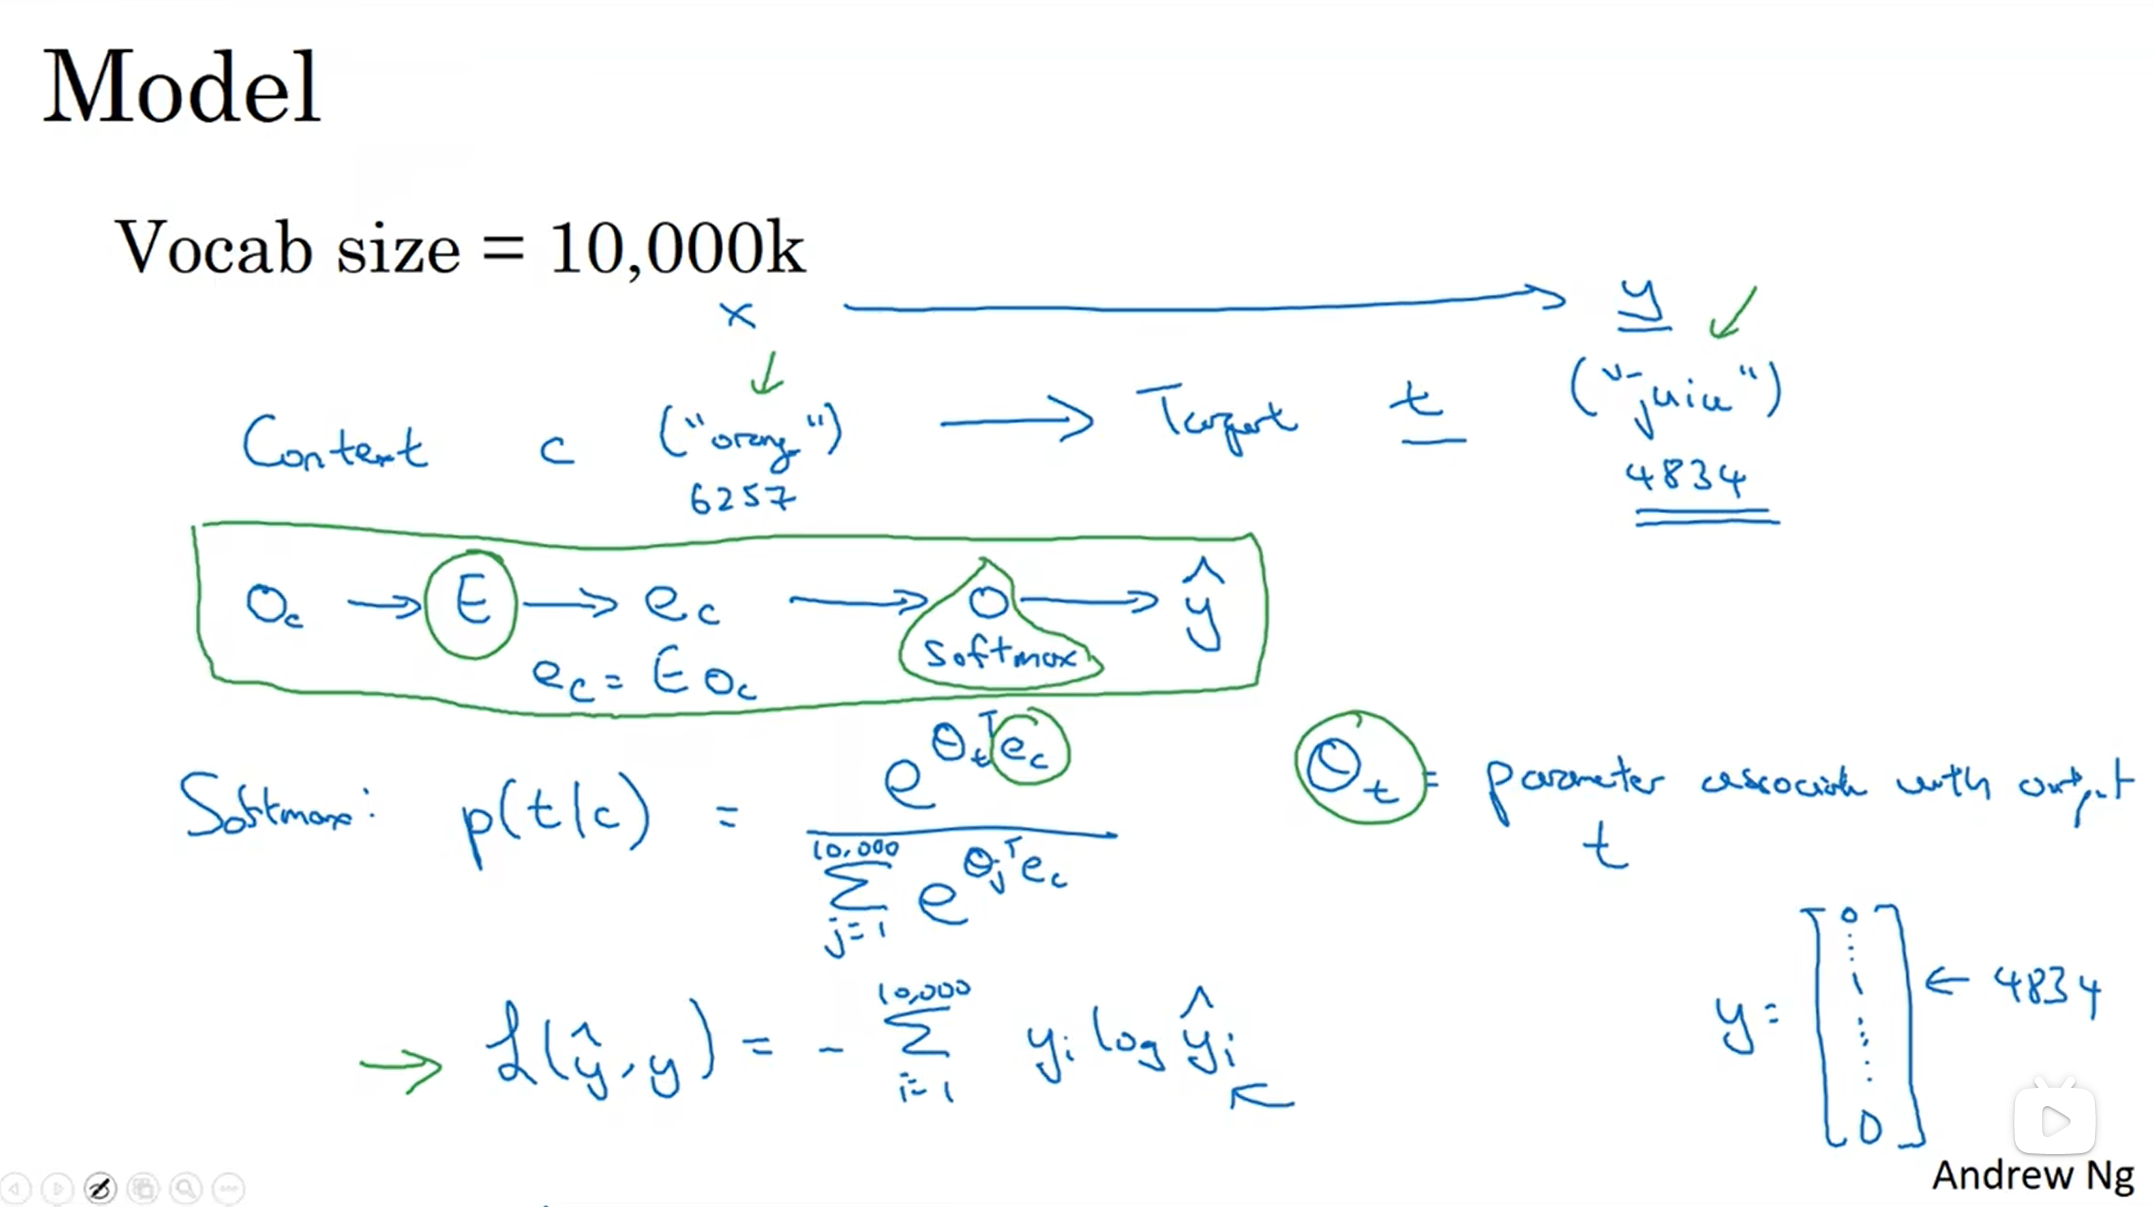 Model
Vocab size = 10,000k
x → y
Context c ("orange") → Target t ("juice")
6257 4834
O_c → E → e_c → O → ŷ
softmax
e_c = E O_c
Softmax: p(t|c) = e^{θ_t^T e_c} / Σ_{j=1}^{10,000} e^{θ_j^T e_c}
θ_t = parameter associated with output t
L(ŷ, y) = - Σ_{i=1}^{10,000} y_i log ŷ_i
y = [0 ⋮ 1 ⋮ 0] ← 4834
Andrew Ng